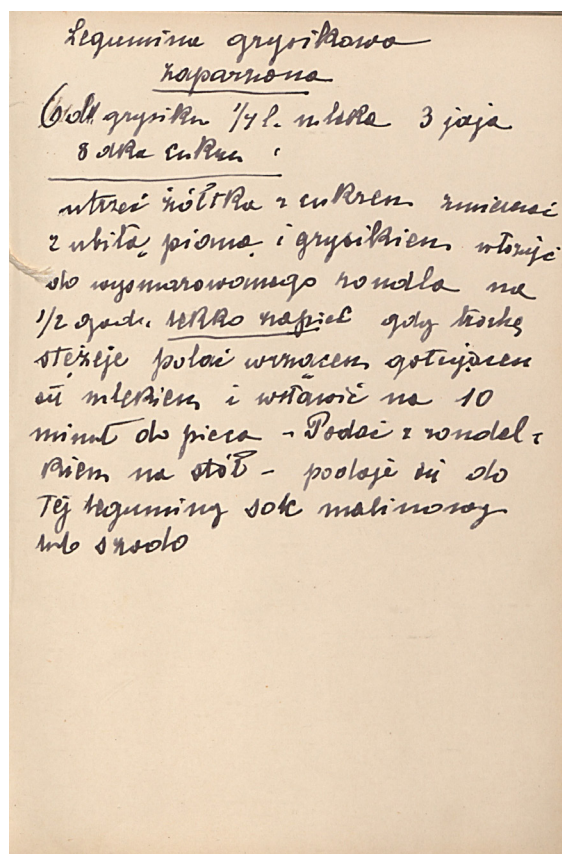 Legumina grysikowa
zaparzona
6 dk grysiku 1/4 l. mleka 3 jaja
8 dka cukru
utrzeć żółtka z cukrem zmieszać
z ubitą pianą i grysikiem włożyć
do wysmarowanego rondla na
1/2 godz. lekko zapiec gdy trochę
stężeje polać wrzącem gotującem
się mlekiem i wstawić na 10
minut do pieca – Podać z rondel-
kiem na stół – podaje się do
Tej leguminy sok malinowy
lub szodo